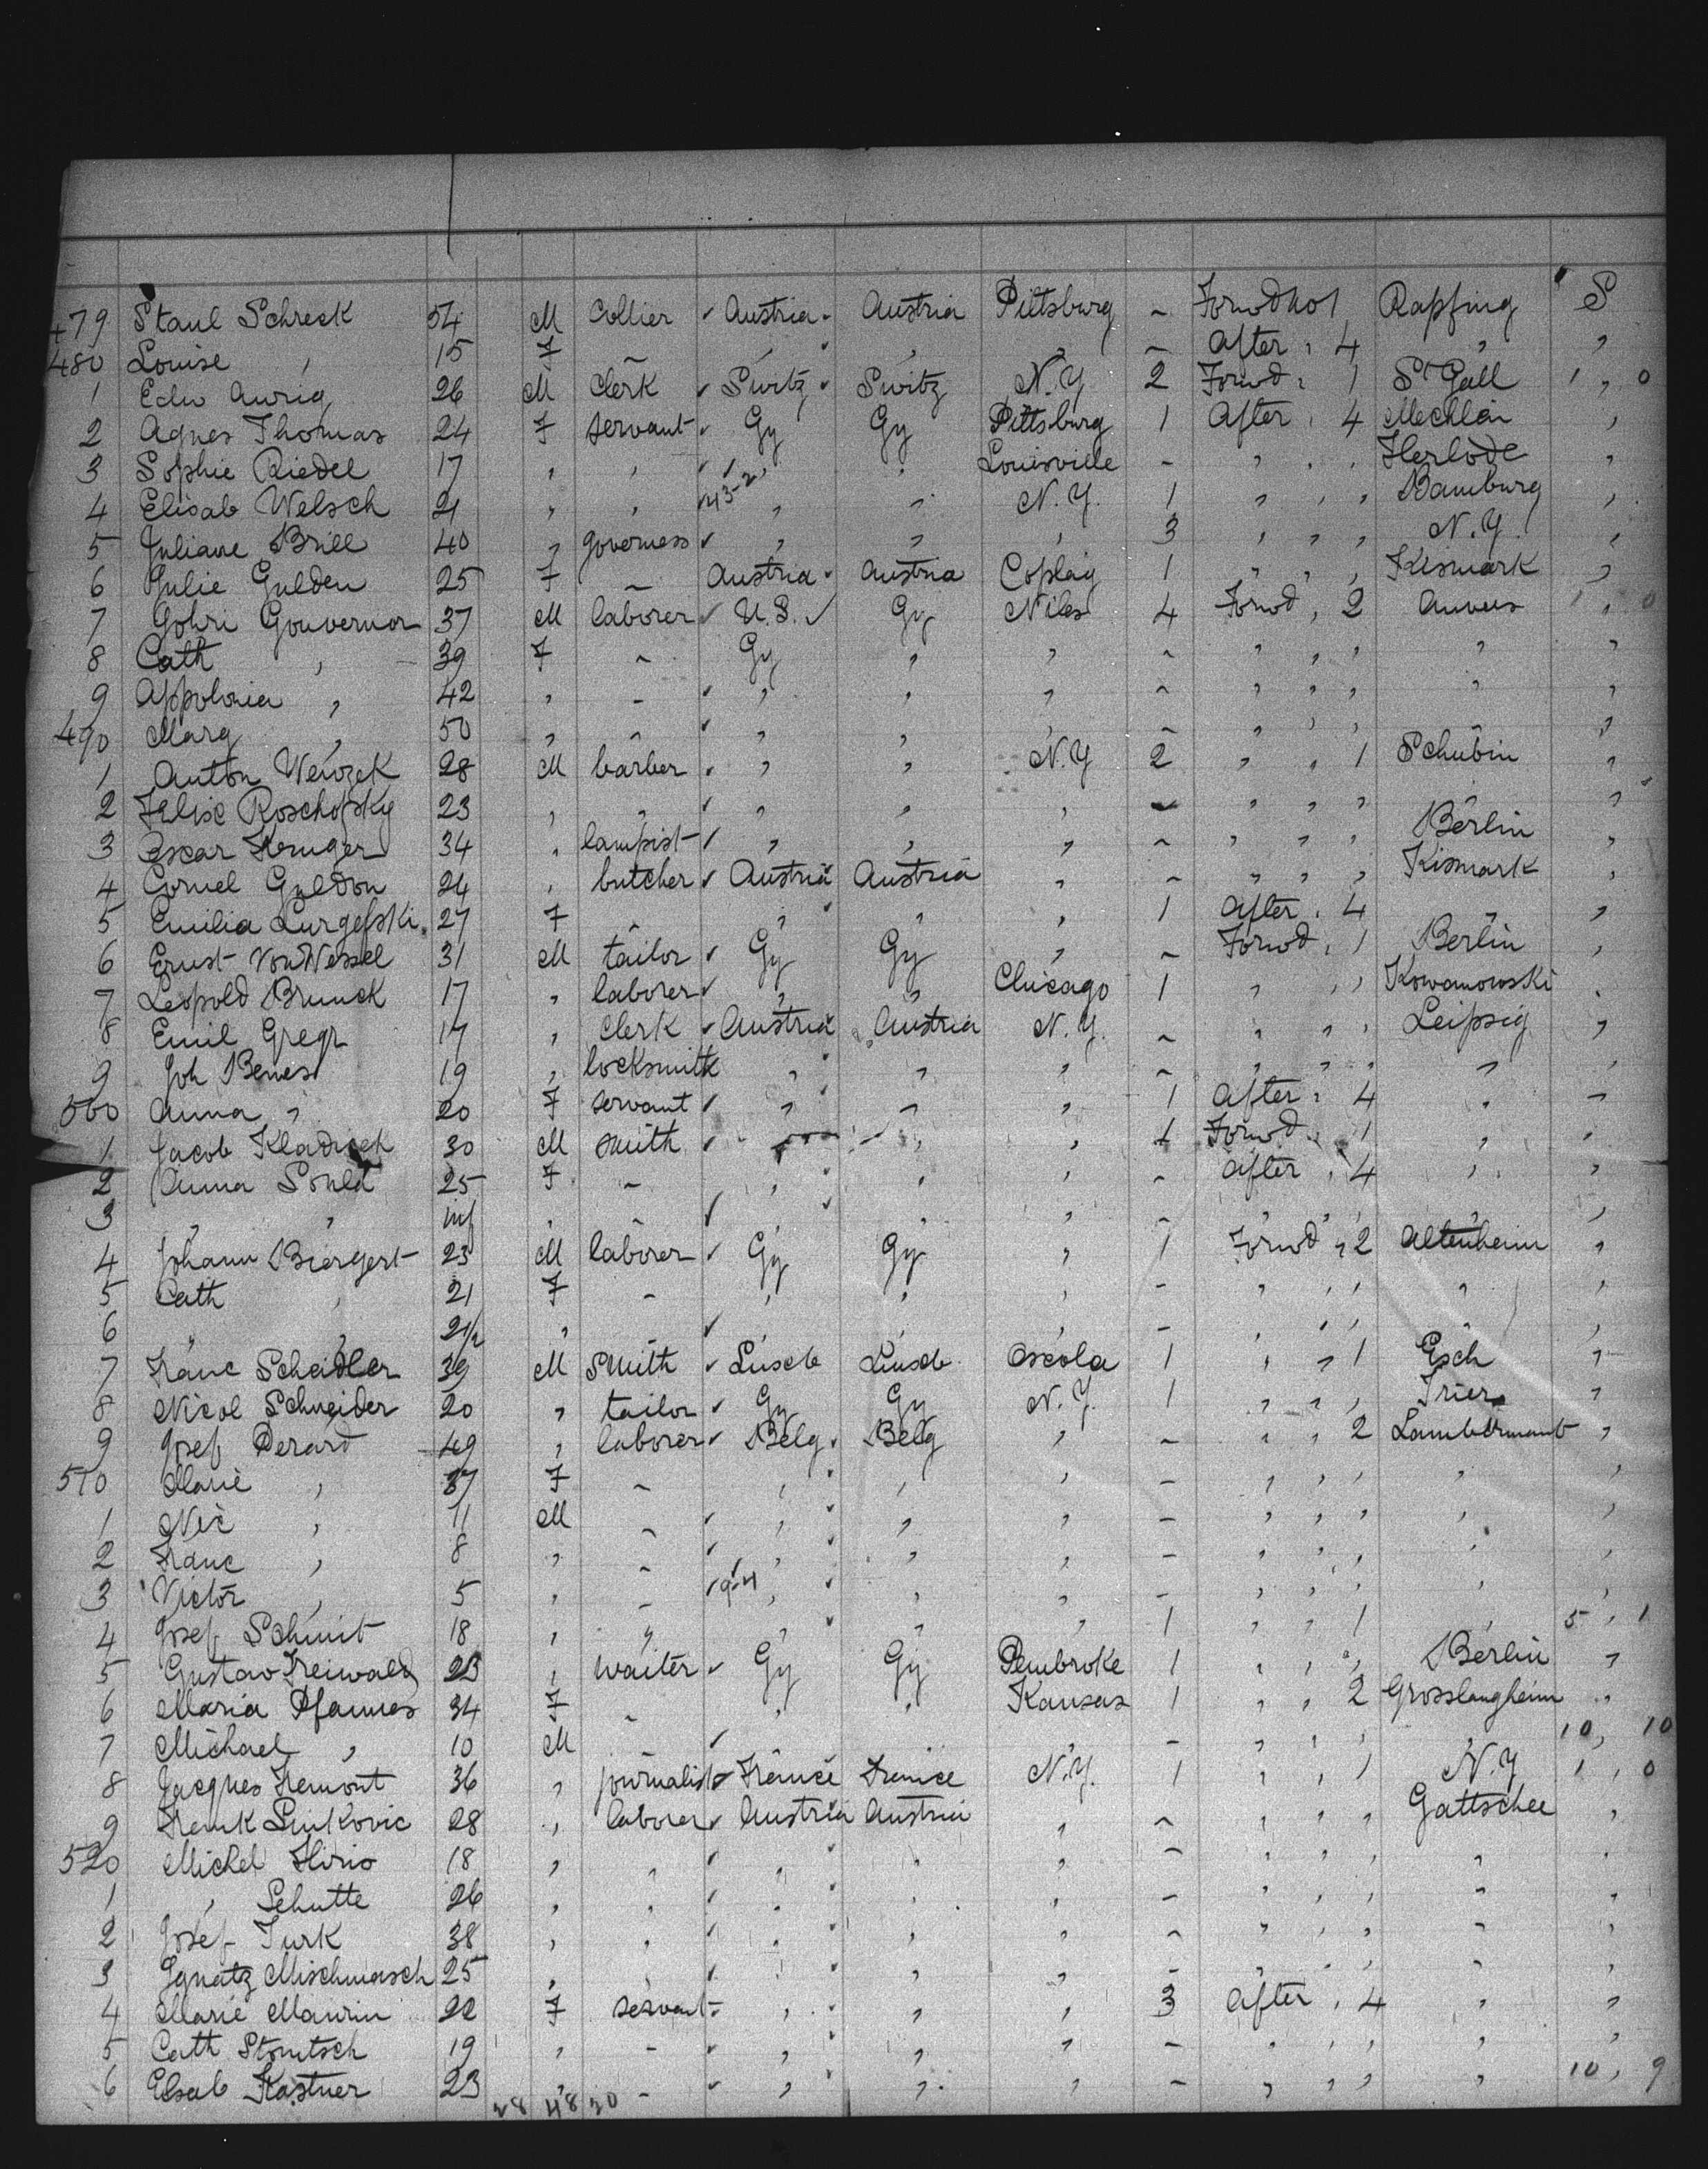 479 Staul Schreck 54 M Collier Austria Austria Pittsburg - Forwd no 1 Rapfing S
480 Louise " 15 F - " " " - After " 4 " "
1 Edw Aurig 26 M Clerk Switz Switz N.Y 2 Forwd " 1 St Gall 1 , 0
2 Agnes Thomas 24 F servant Gy Gy Pittsburg 1 After " 4 Mechlin "
3 Sophie Riedel 17 " " " " Louisville - " " " Herlode "
4 Elisab Welsch 21 " " 43-2 " " N.Y. 1 " " " Bamburg "
5 Juliane Brill 40 " governess " " " 3 " " " N.Y. "
6 Julie Gulden 25 F - Austria Austria Coplay 1 " " " Kismark "
7 Gohri Gouvernor 37 M laborer U.S. Gy Niles 4 Forwd " 2 Anvers 1 , 0
8 Cath " 39 F - Gy " " - " " " " "
9 Appolonia " 42 " - " " " - " " " " "
490 Marg " 50 " - " " " - " " " "
1 Anton Wenzek 28 M barber " " N.Y 2 " " 1 Schubin "
2 Felix Roschofsky 23 " " " " " - " " " " "
3 Oscar Kruger 34 " lampist " " " - " " " Berlin "
4 Cornel Guldon 24 " butcher Austria Austria " - " " " Kismark "
5 Emilia Lurgefski 27 F - " " " 1 After " 4 " "
6 Ernst Von Wessel 31 M tailor Gy Gy " - Forwd " 1 Berlin "
7 Leopold Brunck 17 " laborer " " Chicago 1 " " " Kowanowski "
8 Emil Gregr 17 " Clerk Austria Austria N.Y. - " " " Leipsig "
9 Joh Benes 19 " locksmith " " " - " " " " "
500 Anna " 20 F servant " " " 1 After " 4 " "
1 Jacob 30 M smith " " " 1 Forwd " 1 " "
2 Anna 25 F - " " " - After " 4 " "
3 " " inf " - " " " - " " " " "
4 Johann Biergert 23 M laborer Gy Gy " 1 Forwd " 2 Altenheim "
5 Cath " 21 F - " " " - " " " " "
6 " " 2 1/2 " " " " - " " " "
7 Franc Scheidler 39 M Smith Luxeb Luxeb Osceola 1 " " 1 Esch "
8 Nicol Schneider 20 " tailor Gy Gy N.Y. 1 " " " Trier "
9 Josef Derard 49 " laborer Belg. Belg " - " " 2 Lambermont "
510 Marie " 37 F - " " " - " " " " "
1 Nic " 11 M - " " " - " " " " "
2 Franc " 8 " - " " " - " " " " "
3 Victor " 5 " - 9-4 " " " - " " " " "
4 Josef Schmit 18 " " " " " 1 " " 1 " 5 , 1
5 Gustav Freiwald 23 " waiter Gy Gy Pembroke 1 " " " Berlin "
6 Maria Pfannes 34 F - " " Kansas 1 " " 2 Grosslangheim "
7 Michael " 10 M - " - " " " " 10 , 10
8 Jacques Fremont 36 " journalist France France N.Y. 1 " " 1 N.Y 1 , 0
9 Frank Sinkovic 28 " laborer Austria Austria " - " " " Gattschee "
520 Michel 18 " " " " " - " " " " "
1 " Schutte 26 " " " " " - " " " " "
2 Josef Turk 38 " " " " " - " " " " "
3 Ignatz Mischmasch 25 " " " " " - " " " " "
4 Marie Maurin 22 F servant " " " 3 After " 4 " "
5 Cath Stomtsch 19 " - " " " - " " " " "
6 Elsab Kastner 23 " - " " " - " " " " 10 , 9
28 48 20